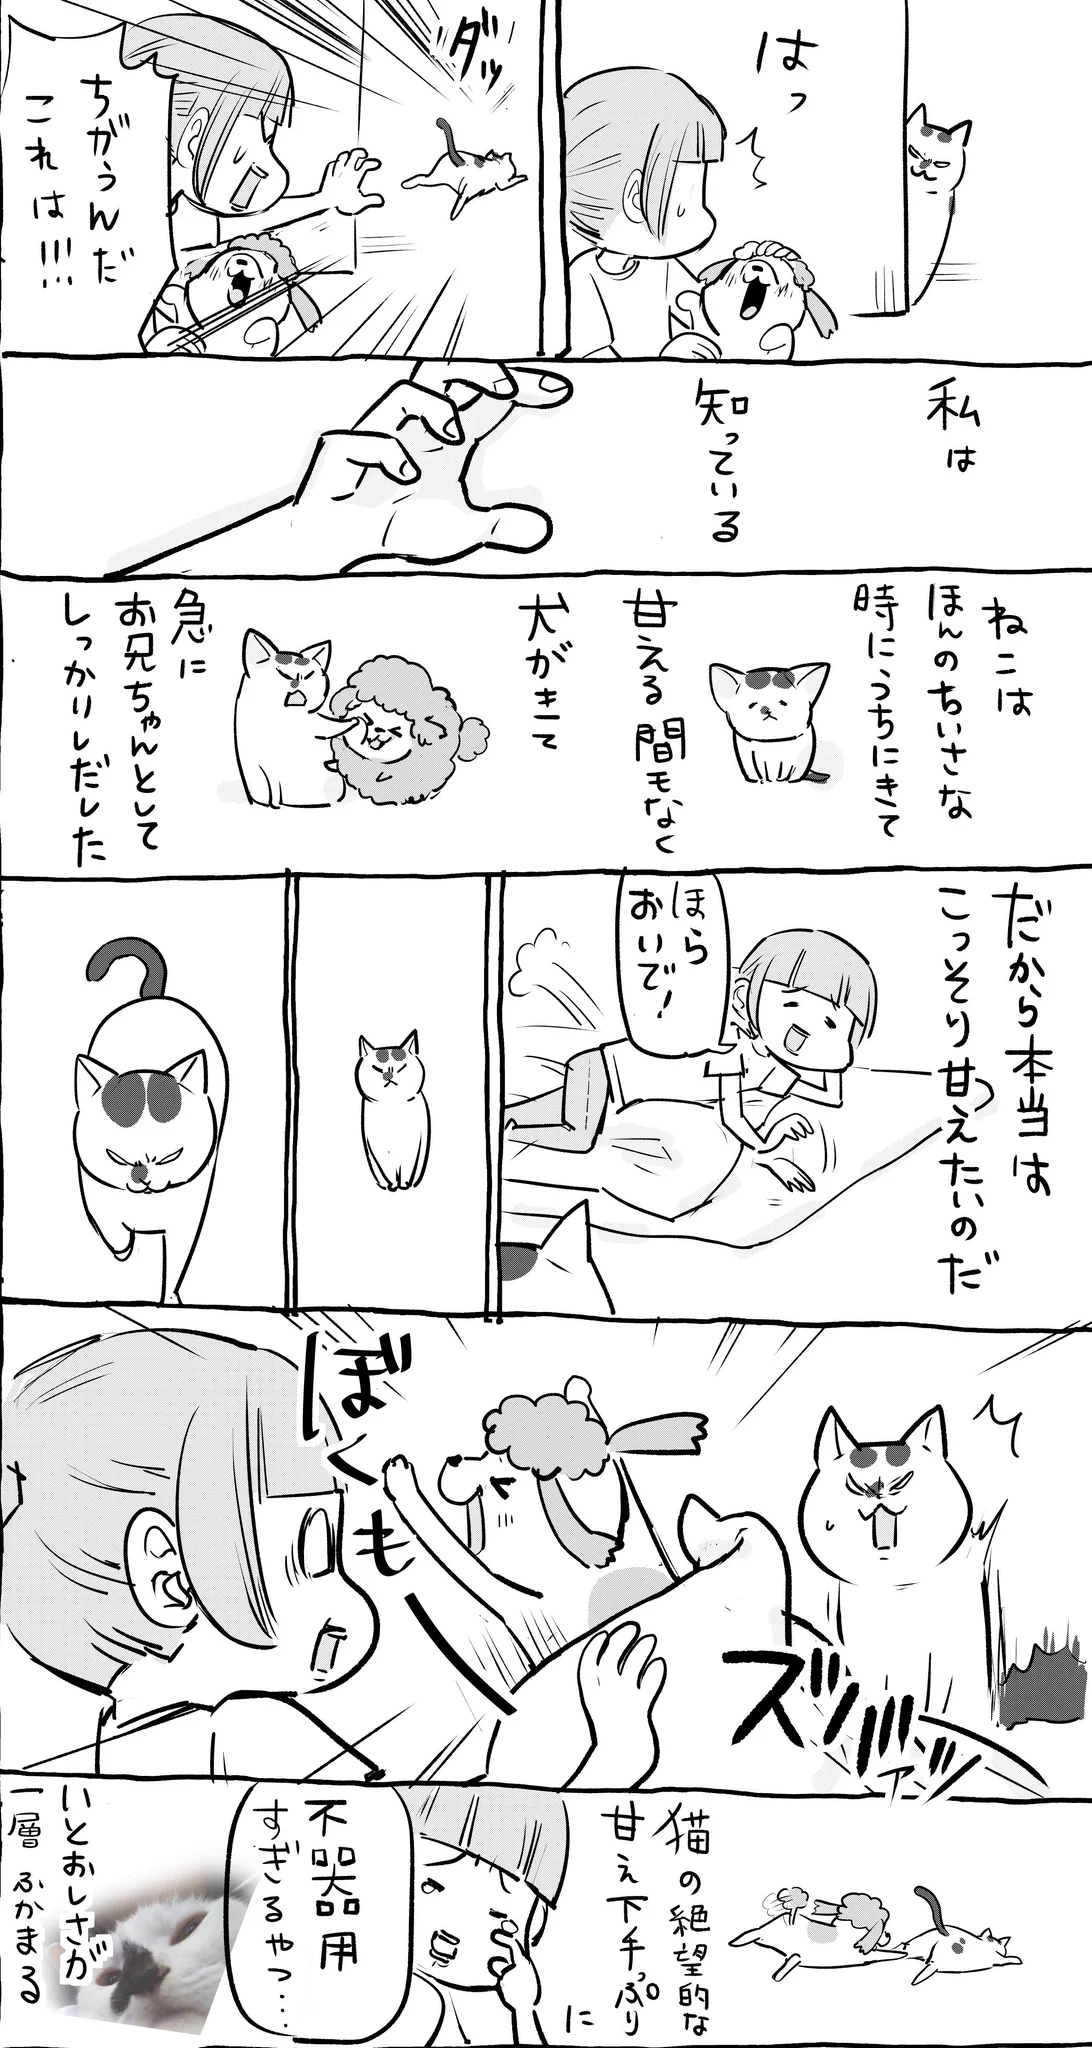 はっ
ダッ
ちがうんだ
これは!!!
私は
知っている
ねこは
ほんのちいさな
時にうちにきて
甘える間モなく
犬がきて
急に
お兄ちゃんとして
しっかりしだした
だから本当は
こっそり甘えたいのだ
ほら
おいで!
ズバァッ
ぼくもー
猫の絶望的な
甘え下手っぷり
に
不器用
すぎるやつ…
いとおしさが
一層ふかまる